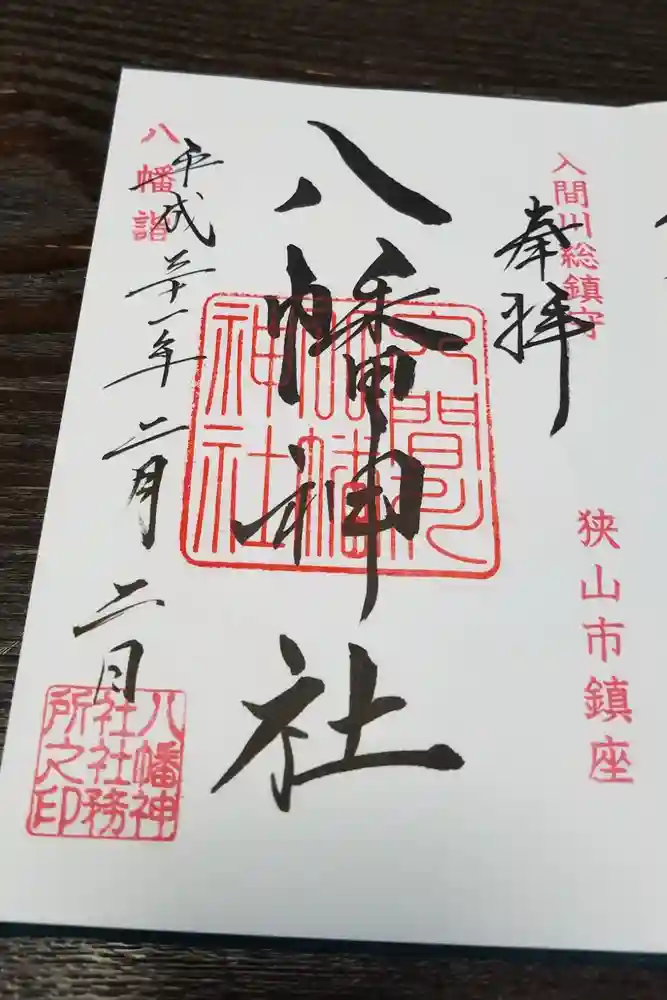 入間川総鎮守
奉拝
狭山市鎮座
八幡神社
入間川
八幡
神社
八幡詣
平成三十一年二月二日
八幡神
社社務
所之印